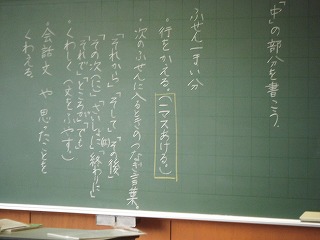 「中」の部分を書こう。
ふせん一まい分
・行をかえる。(一マスあける。)
・次のふせんに入るときのつなぎ言葉。
「それから」「そして」「その後」
「その次(に)」「さいしょに」「終わりに」
「それで」「ところが」「でも」
・くわしく(文をふやす)
・会話文 や 思ったことを
くわえる。